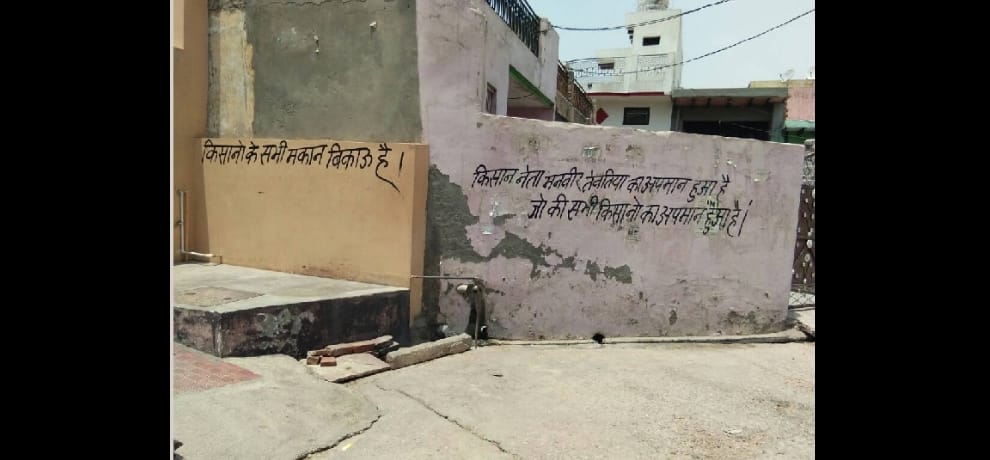 किसानो के सभी मकान बिकाऊ है ।
किसान नेता मनवीर तेवतिया का अपमान हुआ है
जो की सभी किसानो का अपमान हुआ है।